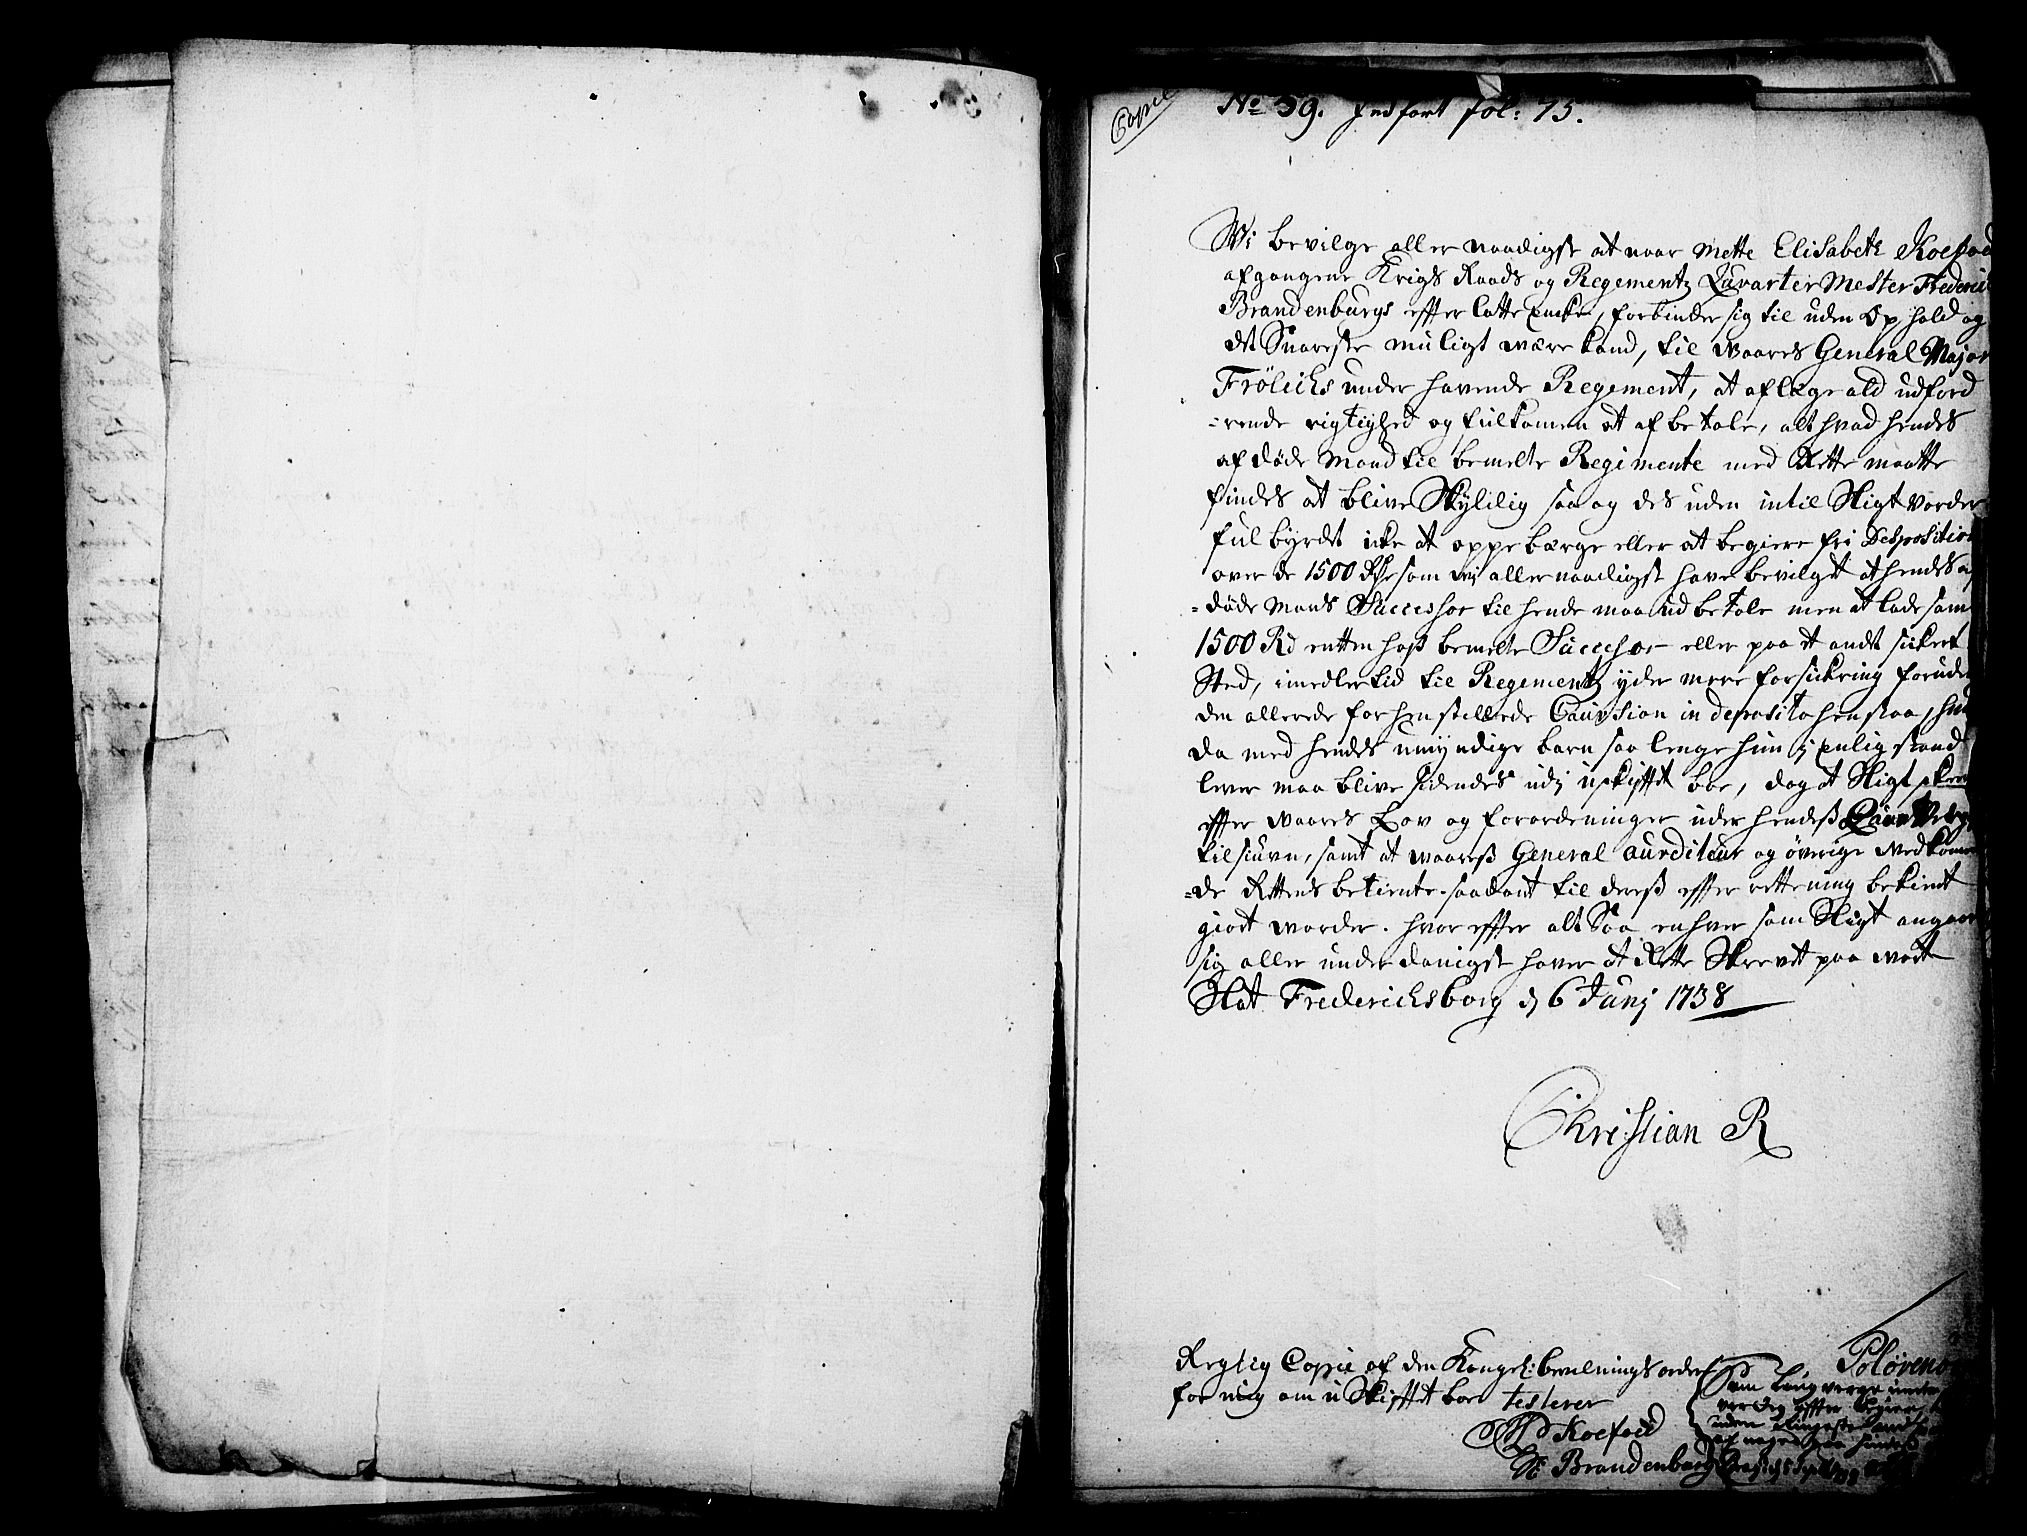 Copie
No 59. Indført fol: 75.
Wi bevilge aller naadigst at naar Mette Elisabeth Koefoed
afgangene Krigs Raads og Regementz Qvarteer Mester Frederich
Brandenburgs effter latte Encke, forbinder sig til uden Ophold og
det Snareste muligt være kand, til woares General Major
Frölichs under havende Regement, at aflæge ald udford
=rende rigtighed og fulkomen at af betale, alt hvad hendes
af døde Mand til bemelte Regimente med Rette maatte
findes at blive Skylilig saa og des uden intil Sligt vorder
fulbyrdet icke at oppebærge eller at begiere fri Desposition
over de 1500 Rdr som wj allernaadigst have bevilget at hendes af
=døde Mands Successor til hende maa udbetale men at lade samme
1500 Rd enten hoss bemelte Successor eller paa et andet sickert
Sted, imedlertid til Regementz yder mere forsickring foruden
den allerede forhenstillede Caution in deposito henstaa, hun
da med hendes umyndige barn saa lenge hun j enlig stand
lever maa blive sidendes udj uskifft boe, dog at Sligt skeer
effter woares Lov og forordeninger under hendess Laug Verges
tilsiuvn, samt at woaress General auditeur og øverige Vedkomen
=de Rettens betiente saadant til deress effter rettening bekient
giort worder. hvor effter alt Saa enhver som Sligt angaar
sig aller underdanigst haver at Rette Skrevet paa wort
Slot Frederichsborg d 6 Junj 1738
Christian R
P Løvenør
Regtig Copie af den Kongel: bevilnings ordre
for mig om uSkifftet boe testerer
MD Koefoed
Sl Brandenborg
Som laug verge under
uden